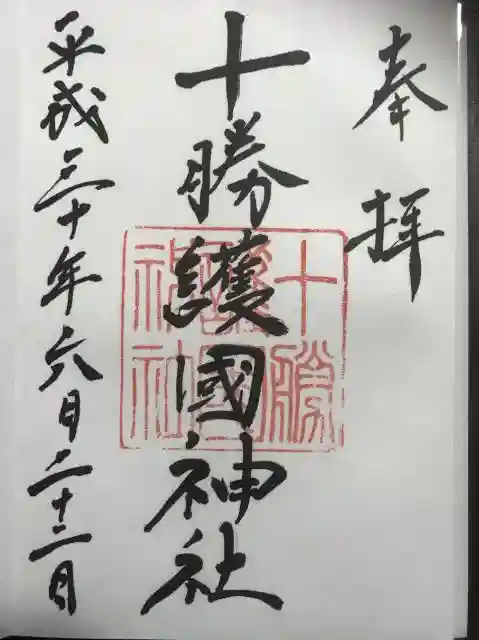 奉拝
十勝護國神社
十勝護國神社
平成三十年六月二十二日